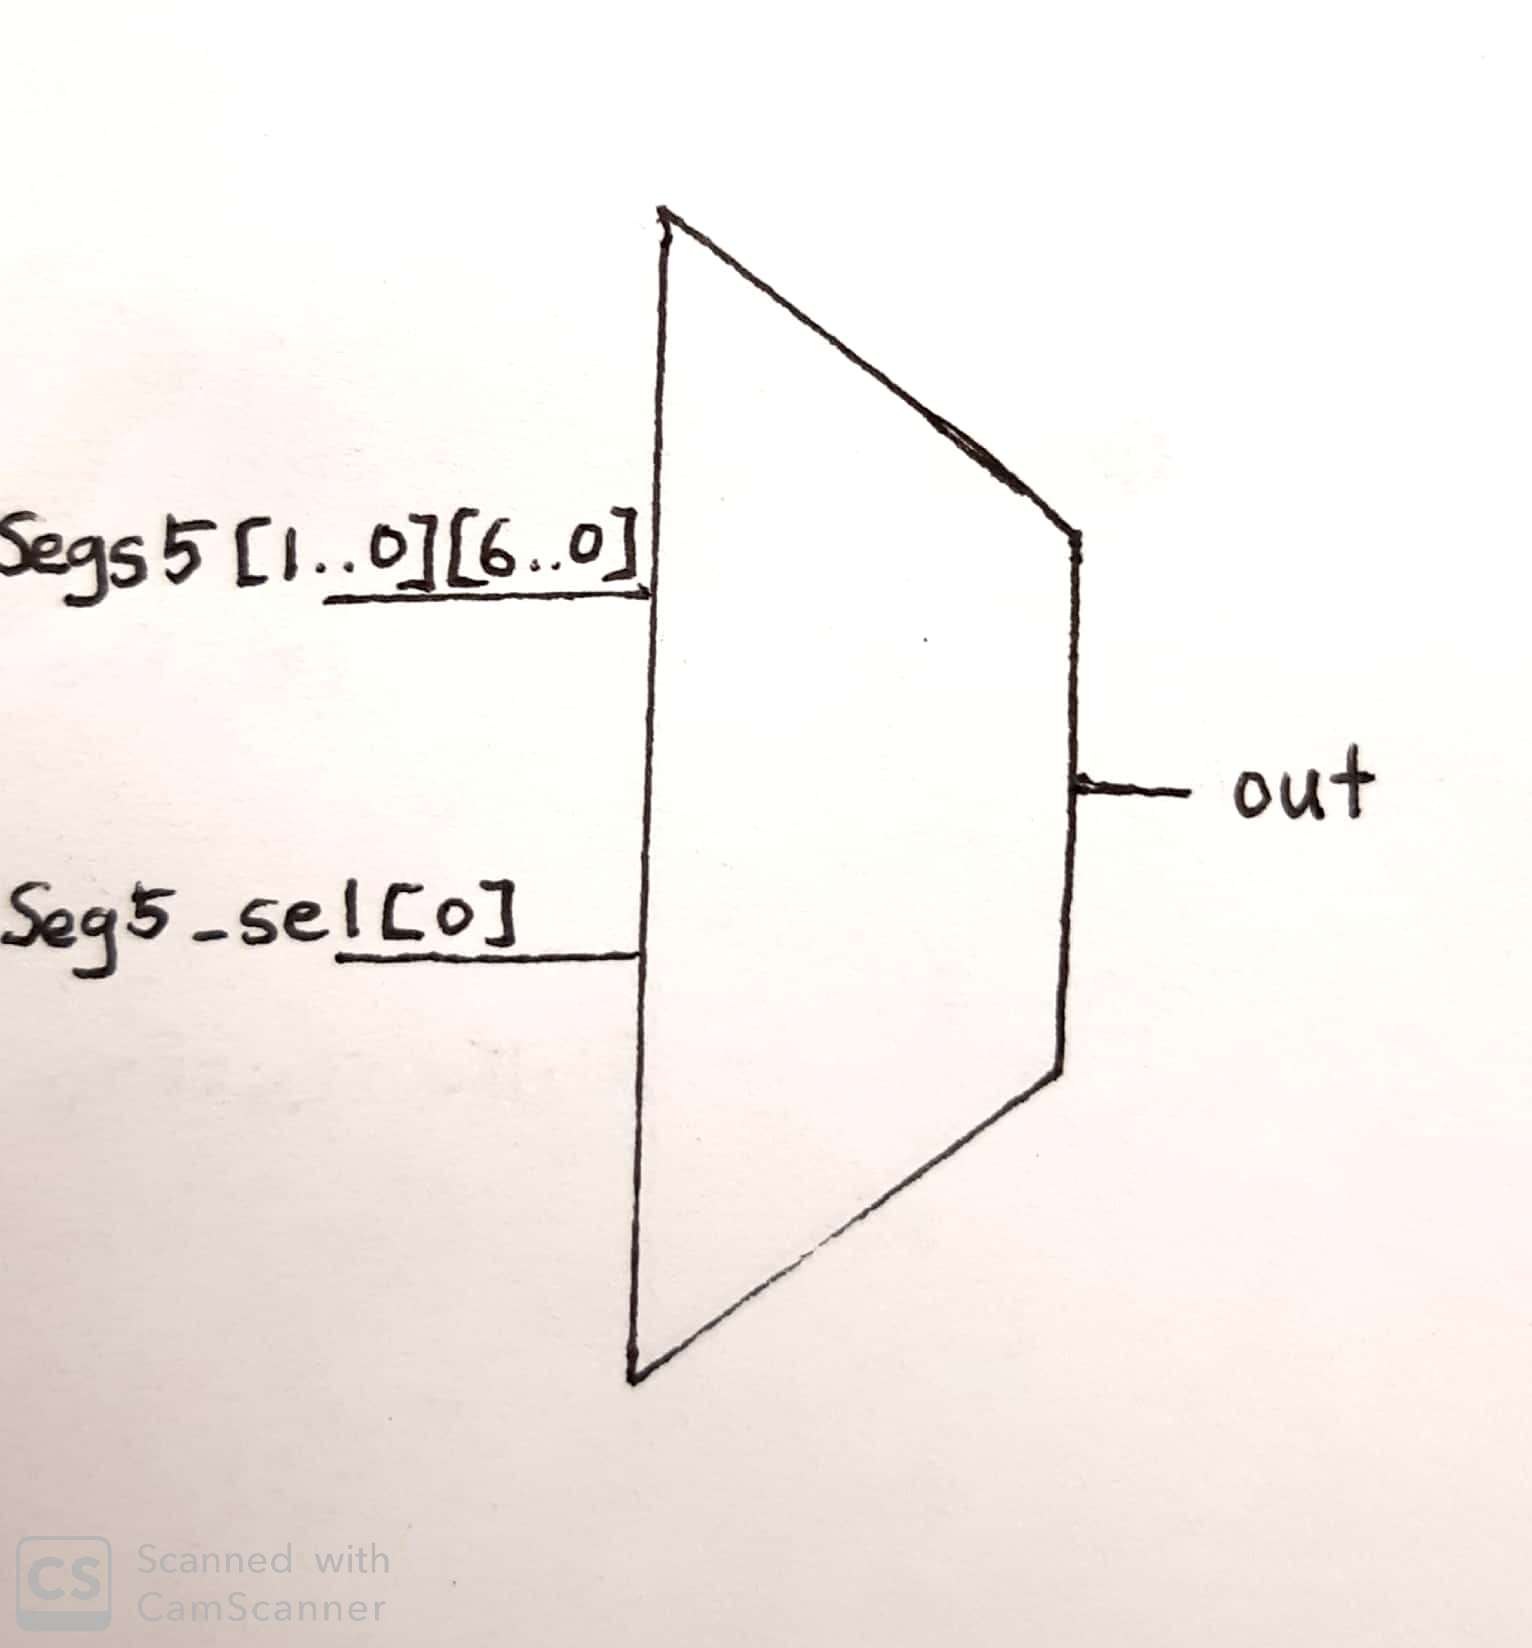 Segs5[1..0][6..0]
out
Seg5-sel[0]
CS Scanned with
CamScanner